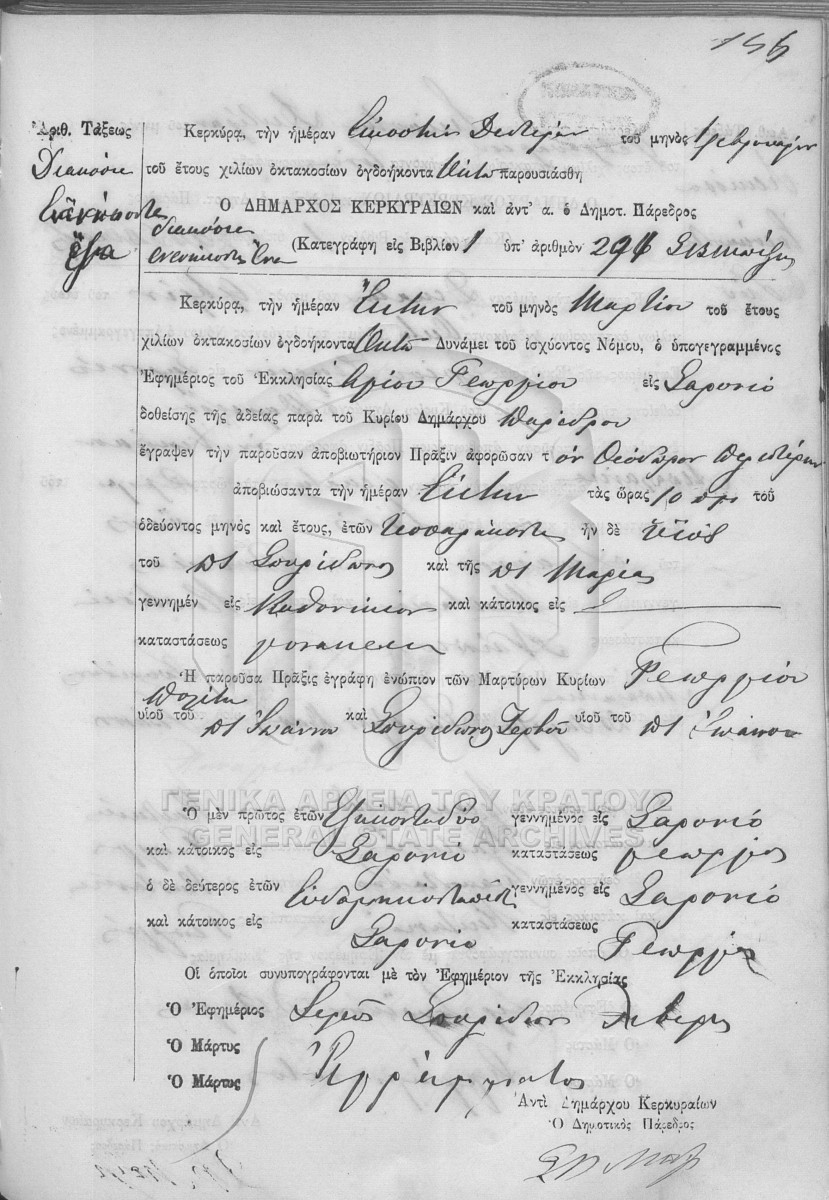 156
Ἀριθ. Τάξεως
Διακόσια
Ἐνενήκοντα
Ἕνα
Κερκύρᾳ, τὴν ἡμέραν Εἰκοστὴν Δευτέραν τοῦ μηνὸς
τοῦ ἔτους χιλίων ὀκτακοσίων ὀγδοήκοντα Ὀκτὼ παρουσιάσθη
Ὁ ΔΗΜΑΡΧΟΣ ΚΕΡΚΥΡΑΙΩΝ καὶ ἀντ' α. ὁ Δημοτ. Πάρεδρος
διακόσια
ενενήκοντα Ένα (Κατεγράφη εἰς Βιβλίον 1 ὑπ' ἀριθμὸν 291
Κερκύρᾳ, τὴν ἡμέραν Ἕκτην τοῦ μηνὸς Μαρτίου τοῦ ἔτους
χιλίων ὀκτακοσίων ὀγδοήκοντα Ὀκτὼ Δυνάμει τοῦ ἰσχύοντος Νόμου, ὁ ὑπογεγραμμένος
Ἐφημέριος τοῦ Ἐκκλησίας Ἁγίου Γεωργίου εἰς
δοθείσης τῆς ἀδείας παρὰ τοῦ Κυρίου Δημάρχου Παρέδρου
ἔγραψεν τὴν παροῦσαν ἀποβιωτήριον Πρᾶξιν ἀφορῶσαν τ ὸν Θεόδωρον
ἀποβιώσαντα τὴν ἡμέραν Ἕκτην τὰς ὥρας 10 πμ τοῦ
ὁδεύοντος μηνὸς καὶ ἔτους, ἐτῶν τεσσαράκοντα ἦν δὲ υἱὸς
τοῦ πτ Σπυρίδωνος καὶ τῆς πτ Μαρίας
γεννημέν εἰς καὶ κάτοικος εἰς
καταστάσεως
Ἡ παροῦσα Πρᾶξις ἐγράφη ἐνώπιον τῶν Μαρτύρων Κυρίων Γεωργίου
Πολίτη
υἱοῦ τοῦ πτ Ἰωάννου καὶ Σπυρίδωνος Ζερβοῦ υἱοῦ τοῦ πτ Ἰωάννου
ΓΕΝΙΚΑ ΑΡΧΕΙΑ ΤΟΥ ΚΡΑΤΟΥΣ
GENERAL STATE ARCHIVES
Ὁ μὲν πρῶτος ἐτῶν Ἑξήκοντα δύο γεννημένος εἰς
καὶ κάτοικος εἰς καταστάσεως γεωργὸς
ὁ δὲ δεύτερος ἐτῶν Ἑβδομήκοντα γεννημένος εἰς
καὶ κάτοικος εἰς καταστάσεως Γεωργὸς
Οἱ ὁποῖοι συνυπογράφονται μὲ τὸν Ἐφημέριον τῆς Ἐκκλησίας
Ὁ Ἐφημέριος Ἱερεὺς Σπυρίδων
Ὁ Μάρτυς
Ὁ Μάρτυς Ἀγράμματος
Ἀντὶ Δημάρχου Κερκυραίων
Ὁ Δημοτικὸς Πάρεδρος